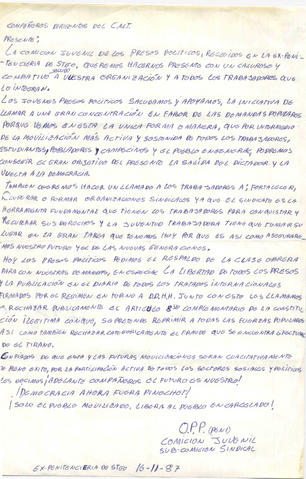 COMPAÑEROS DIRIGENTE DEL C.N.T.
PRESENTE:
LA COMICION JUVENIL DE LOS PRESOS POLITICOS, RECLUIDOS EN LA EX-PENI-
TENCIERIA DE STGO, QUEREMOS HACERNOS PRESENTE CON UN CALUROSO Y
COMBATIVO SALUDO A VUESTRA ORGANIZACIÓN Y A TODOS LOS TRABAJADORES QUE
LO INTEGRAN.
LOS JOVENES PRESOS POLITICOS SALUDAMOS Y APOYAMOS, LA INICIATIVA DE
LLAMAR A UNA GRAN CONCENTRACION EN FABOR DE LAS DEMANDAS POPULARES
PORQUE VEMOS EN ESTA LA UNICA FORMA O MANERA, QUE POR INTERMEDIO
DE LA MOVILIZACIÓN MAS ACTIVA Y SOSTENIDA DE TODOS LOS TRABAJADORES,
ESTUDIANTES, POBLADORES Y CAMPECINOS Y EL PUEBLO EN GENERAL, PODREMOS
CONSEGUIR EL GRAN OBJETIVO DEL PRESENTE LA SALIDA DEL DICTADOR Y LA
VUELTA A LA DEMOCRACIA.
TAMBIEN QUEREMOS HACER UN LLAMADO A LOS TRABAJADORES A; FORTALECER,
LIDERAR O FORMAR ORGANIZACIONES SINDICALES YA QUE EL SINDICATO ES LA
HERRAMIENTA FUNDAMENTAL QUE TIENEN LOS TRABAJADORES PARA CONQUISTAR Y
RECUPERAR SUS DERECHOS Y LA JUVENTUD TRABAJADORA TIENE QUE TOMAR SU
LUGAR EN LA GRAN TAREA QUE TENEMOS HOY POR QUE ES ASI COMO ASEGURARE-
MOS NUESTRO FUTURO Y DE LAS NUEVAS GENERACIONES.
HOY LOS PRESOS POLITICOS PEDIMOS EL RESPALDO DE LA CLASE OBRERA
PARA CON NUESTRAS DEMANDAS, EN ESPECIAL LA LIBERTAD DE TODOS LOS PRESOS
Y LA PUBLICACIÓN EN EL DIARIO DE TODOS LOS TRATADOS INTERNACIONALES
FIRMADOS POR EL REGIMEN EN TORNO A DD.HH. JUNTO CON ESTO LOS LLAMAMOS
A RECHAZAR PUBLICAMENTE EL ARTICULO 8º COMPLEMENTARIO DE LA CONSTITU-
CIÓN ILEGITIMA CON QUE, SE PRETENDE REPRIMIR A TODAS LAS FUERZAS POPULARES
ASI COMO TAMBIEN RECHAZAR EL FRAUDE QUE SE ENCUENTRA EJECUTANDO
EL TIRANO.
SEGUROS DE QUE ESTA Y LAS FUTURAS MOVILIZACIONES SERAN CUALITATIVAMENTE
DE PLENO EXITO, POR LA PARTICIPACIÓN ACTIVA DE TODOS LOS SECTORES SOCIALES Y POLITICOS
LES DECIMOS ¡ADELANTE COMPAÑEROS EL FUTURO ES NUESTRO!
¡DEMOCRACIA AHORA FUERA PINOCHET!
¡SOLO EL PUEBLO MOVILIZADO, LIBERA AL PUEBLO ENCARCELADO!
O.P.P. (PENI)
COMICION JUVENIL
SUB-COMISION SINDICAL
EX-PENITENCIERIA DE STGO 16-11-87